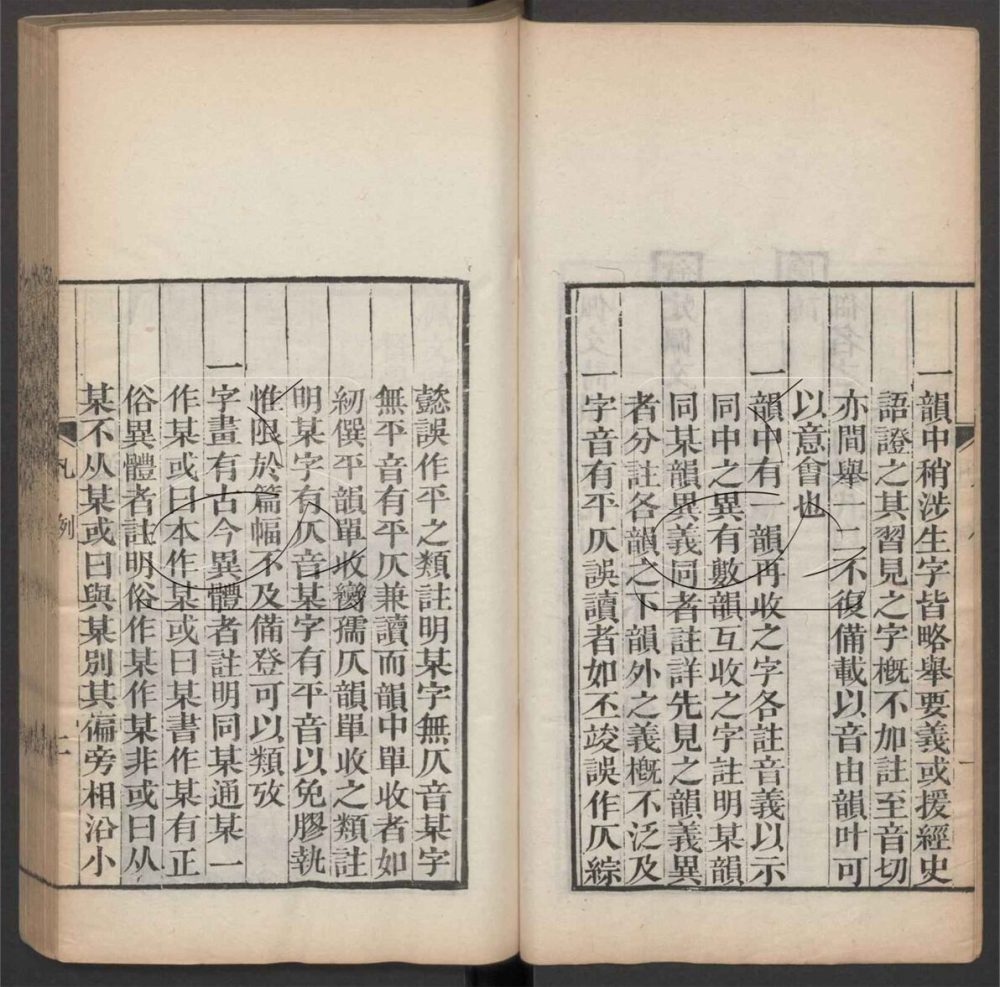 一韻中稍涉生字皆略舉要義或援經史
語證之其習見之字概不加註至音切
亦間舉一二不復備載以音由韻叶可
以意會也
一韻中有一韻再收之字各註音義以示
同中之異有數韻互收之字註明某韻
同某韻異義同者註詳先見之韻義異
者分註各韻之下韻外之義概不泛及
一字音有平仄誤讀者如丕竣誤作仄綜
懿誤作平之類註明某字無仄音某字
無平音有平仄兼讀而韻中單收者如
紉僎平韻單收孌孺仄韻單收之類註
明某字有仄音某字有平音以免膠執
惟限於篇幅不及備登可以類攷
一字畫有古今異體者註明同某通某一
作某或曰本作某或曰某書作某有正
俗異體者註明俗作某作某非或曰从
某不从某或曰與某別其偏旁相沿小
凡例
二